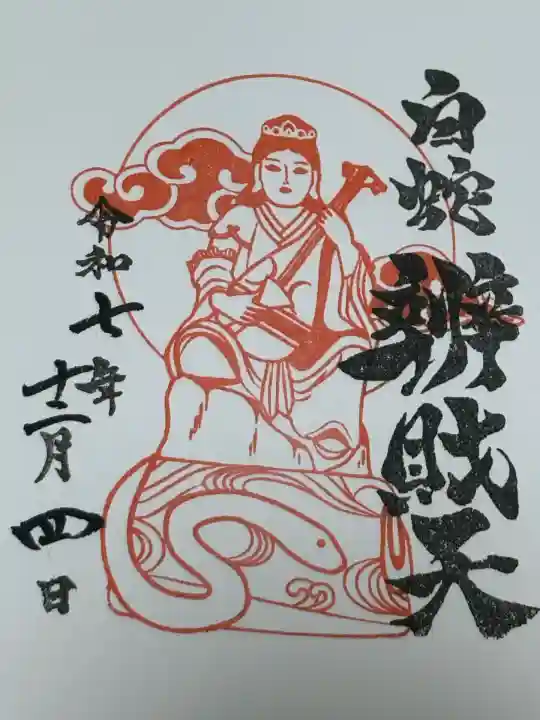 白蛇
辨財天
令和七年
十二月
四日